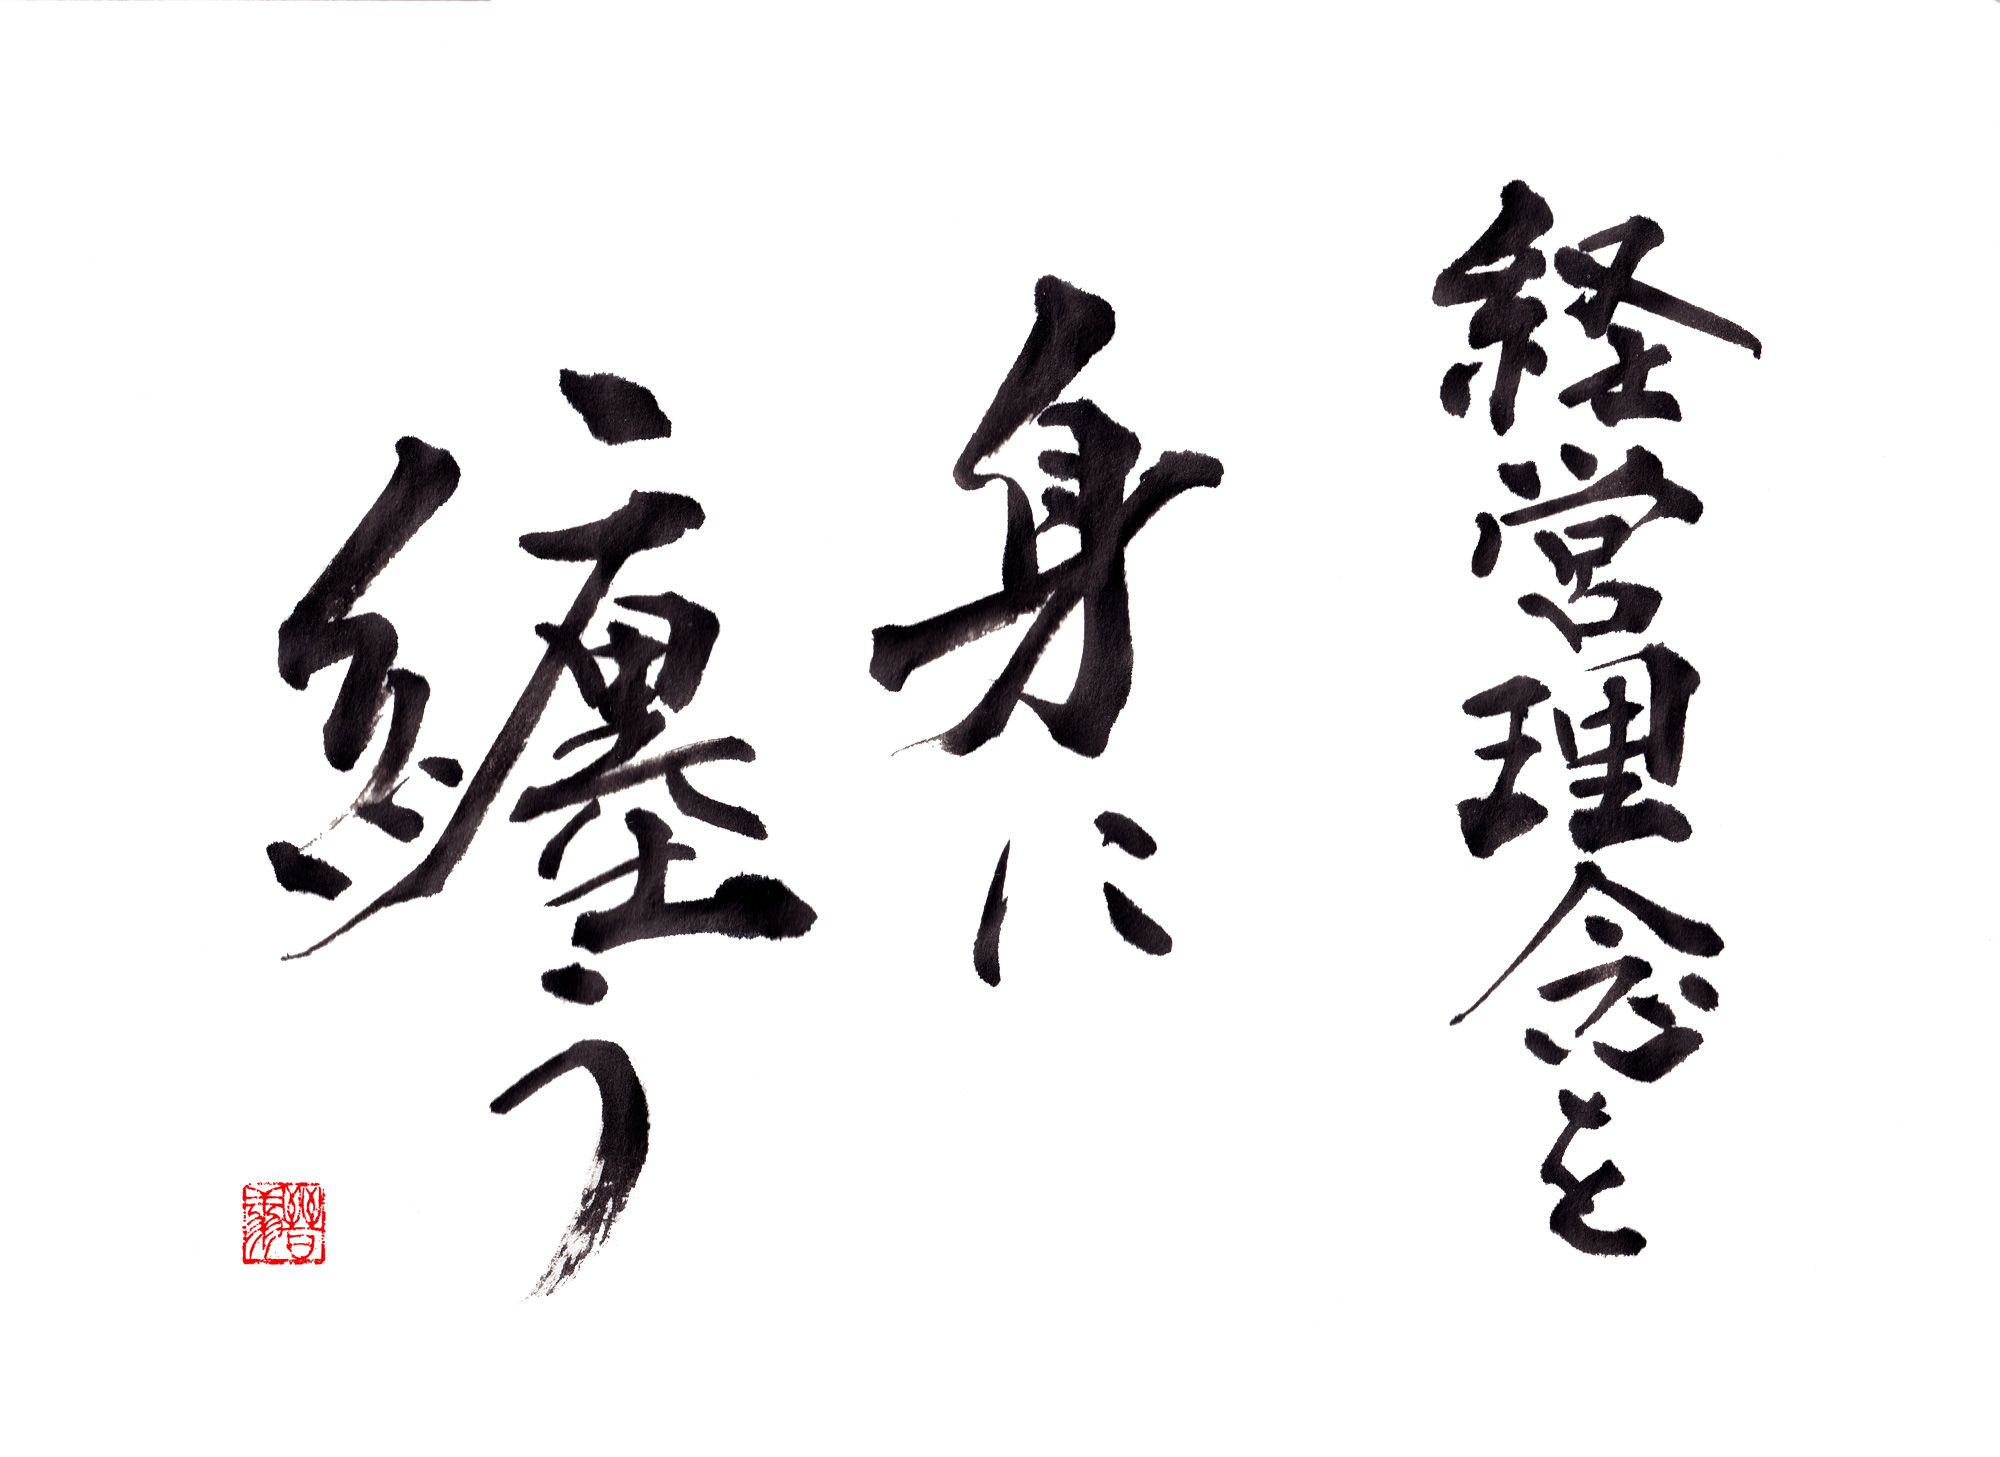 経営理念を
身に
纏う